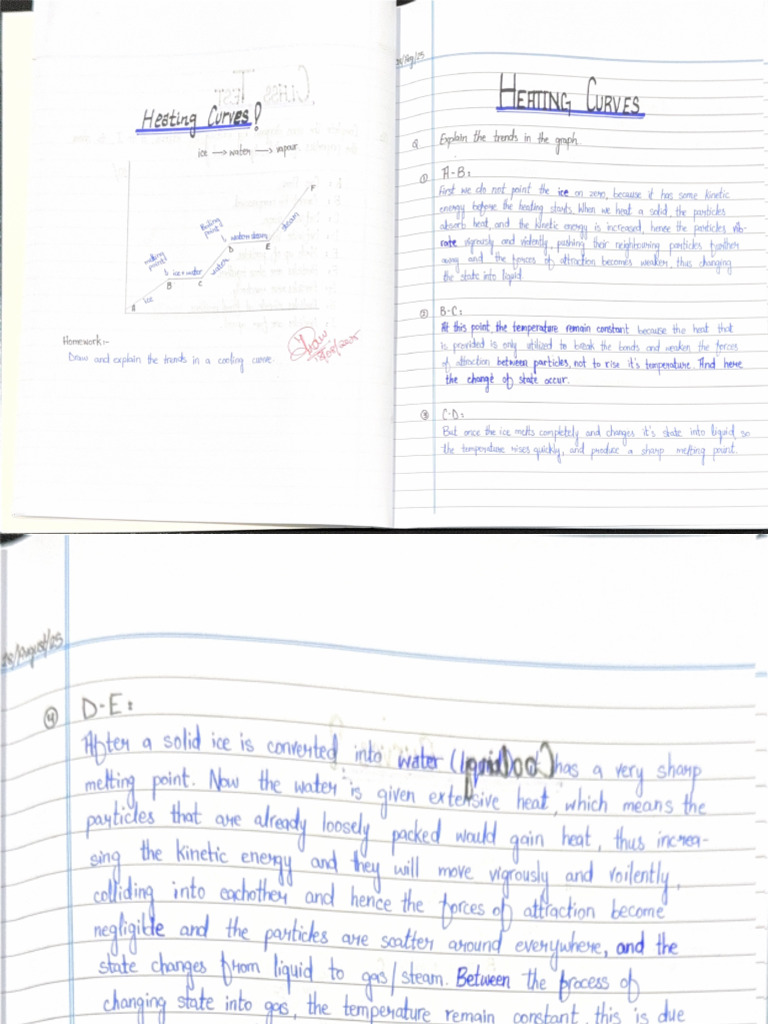 Heating Curves!
ice → water → vapour
F
steam
Boiling point!
water+steam
D
E
water
melting point!
ice+water
B
C
ice
A
Homework:-
Draw and explain the trends in a cooling curve.
HEATING CURVES
Q. Explain the trends in the graph.
① A-B:
First we do not point the ice on zero, because it has some kinetic
energy before the heating starts. When we heat a solid, the particles
absorb heat, and the kinetic energy is increased, hence the particles vib-
rate vigrously and violently, pushing their neighbouring particles further
away and the forces of attraction becomes weaker, thus changing
the state into liquid.
② B-C:
At this point, the temperature remain constant because the heat that
is provided is only utilized to break the bonds and weaken the forces
of attraction between particles, not to rise it's temperature. And here
the change of state occur.
③ C-D:
But once the ice melts completely and changes it's state into liquid, so
the temperature rises quickly, and produce a sharp melting point.
18/August/25
④ D-E:
After a solid ice is converted into water (liquid) has a very sharp
melting point. Now the water is given extensive heat, which means the
particles that are already loosely packed would gain heat, thus increa-
sing the kinetic energy and they will move vigrously and voilently,
colliding into eachother and hence the forces of attraction become
negligible and the particles are scatter around everywhere, and the
state changes from liquid to gas/steam. Between the process of
changing state into gas, the temperature remain constant, this is due